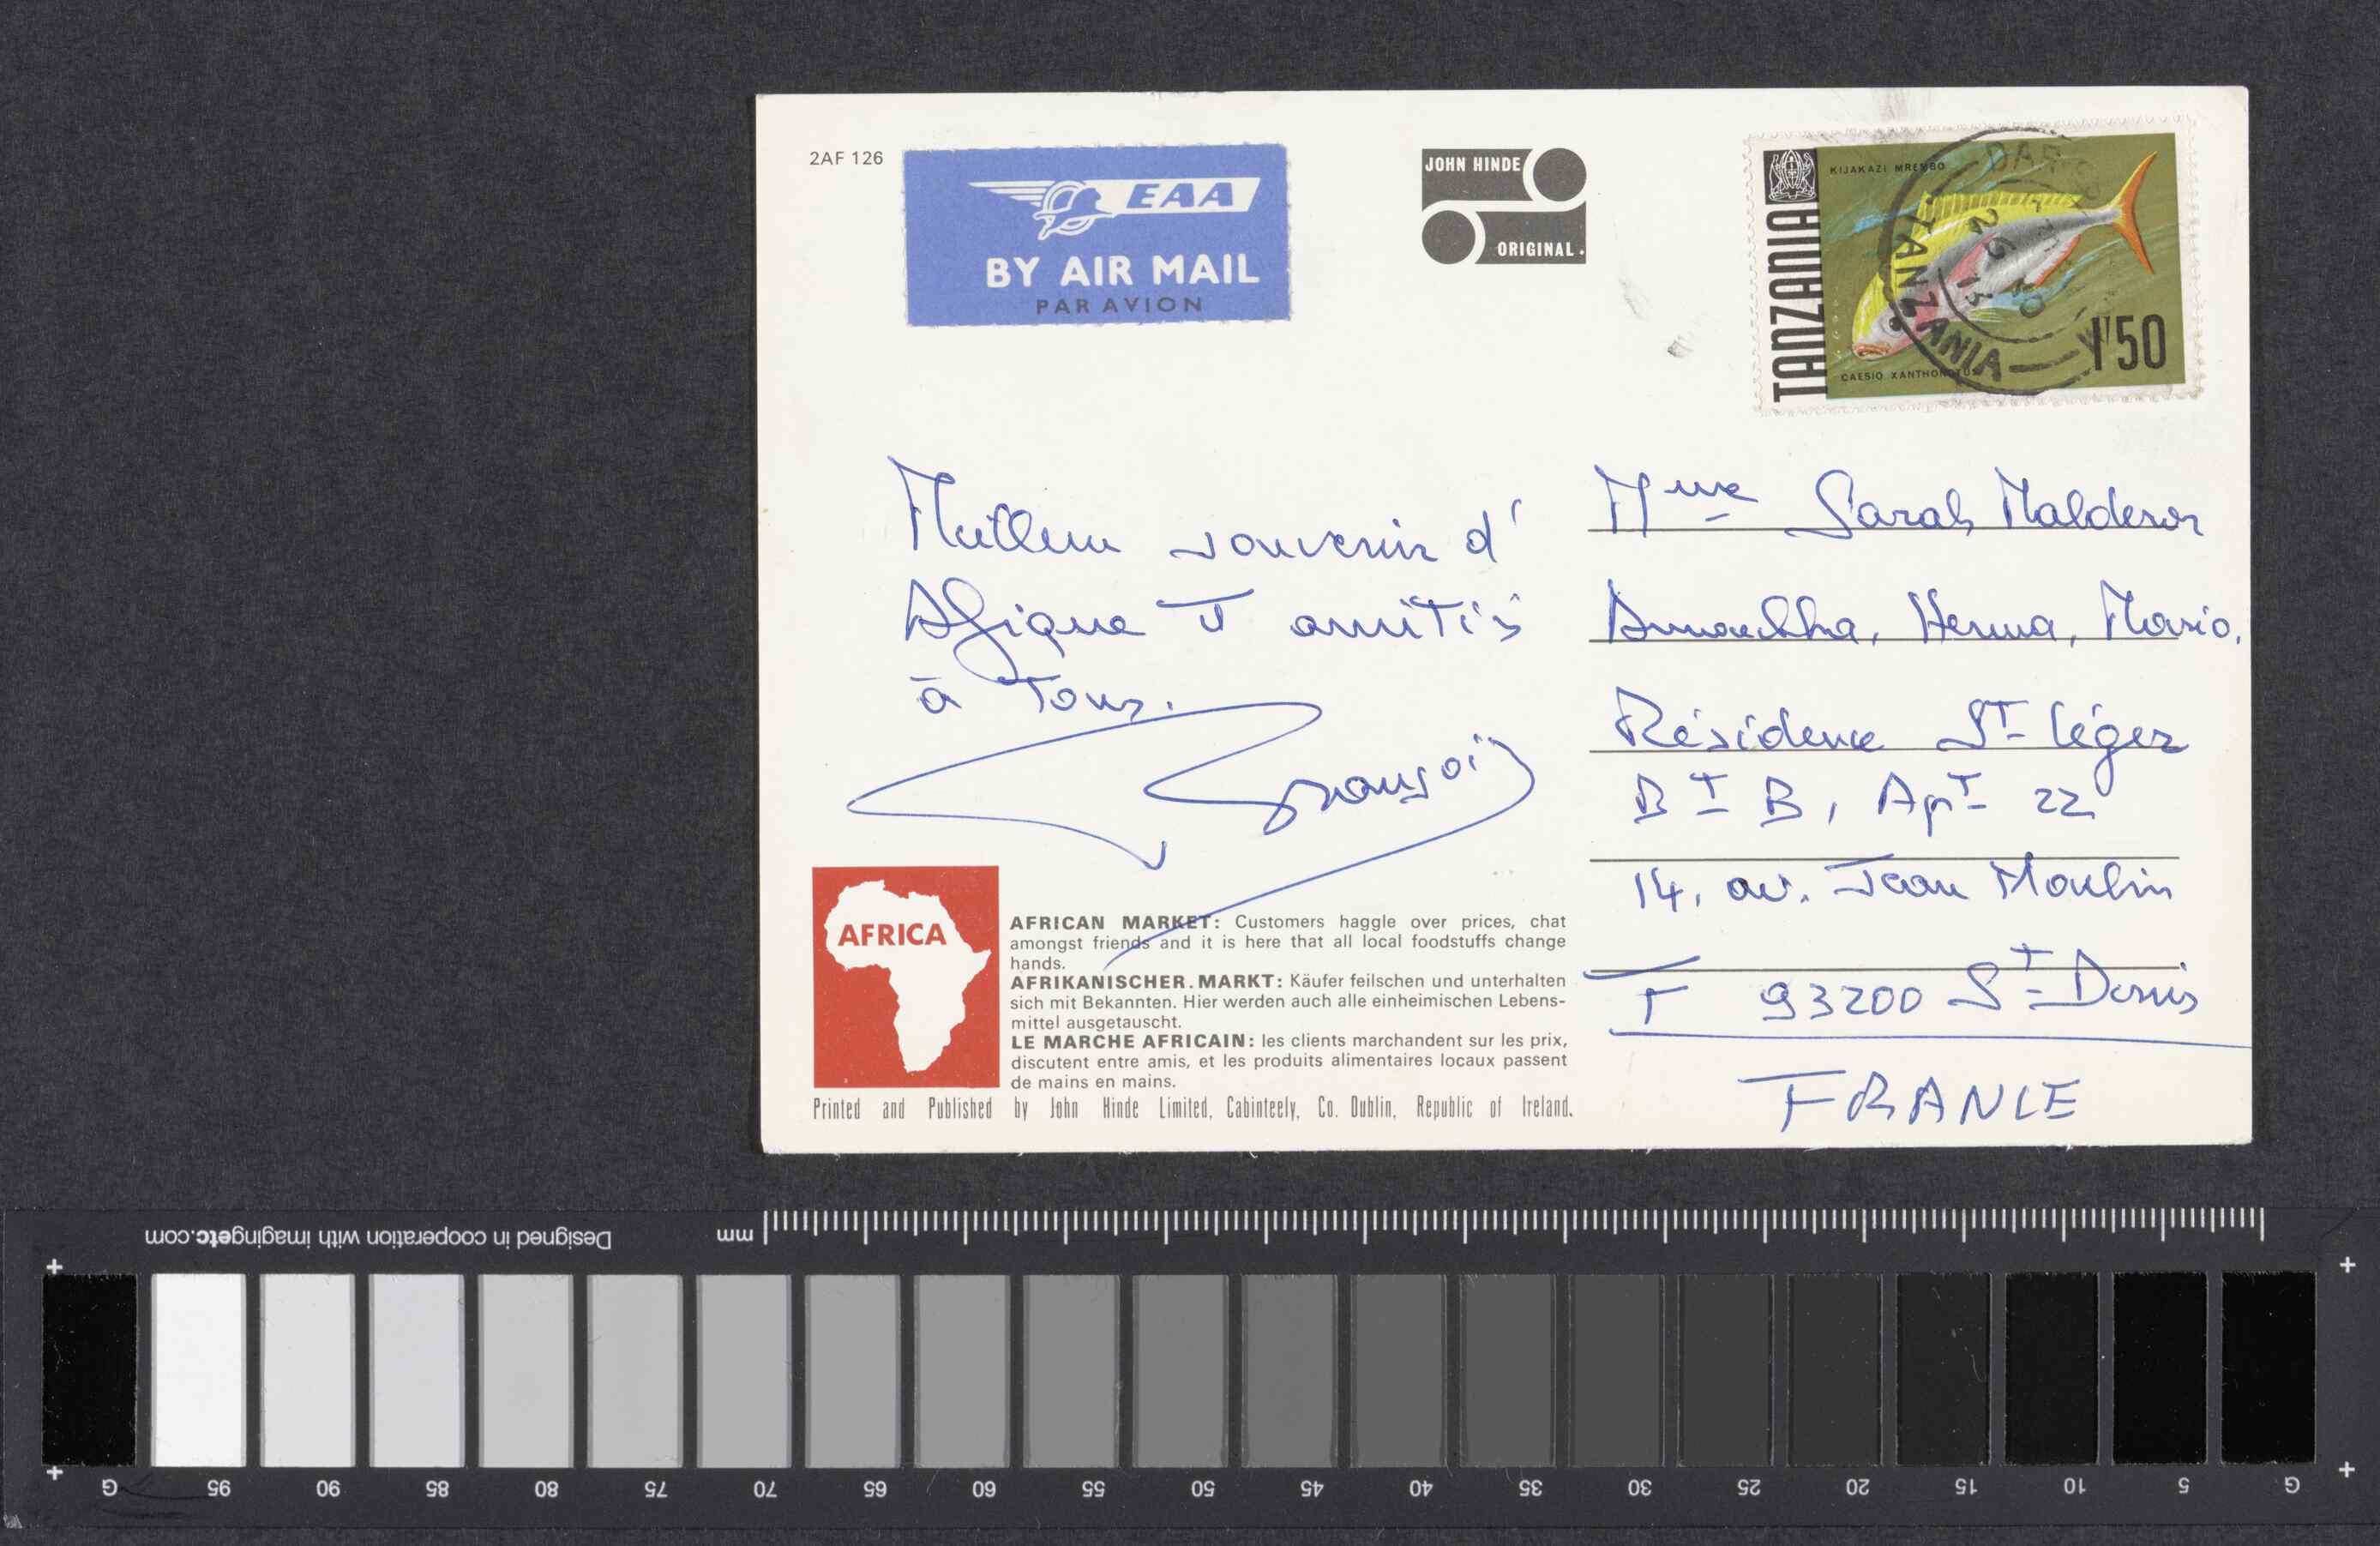 2AF 126
EAA
BY AIR MAIL
PAR AVION
JOHN HINDE
ORIGINAL.
TANZANIA
KIJAKAZI MREMBO
CAESIO XANTHONOTUS
1'50
DAR
TANZANIA
Meilleur souvenir d'
Afrique et amitiés
à Tous.
François
Mme Sarah Maldoror
Annouchka, Henna, Mario.
Résidence St- Léger
Bt B, Apt- 22
14, av. Jean Moulin
F 93200 St-Denis
FRANCE
AFRICA
AFRICAN MARKET: Customers haggle over prices, chat
amongst friends and it is here that all local foodstuffs change
hands.
AFRIKANISCHER.MARKT: Käufer feilschen und unterhalten
sich mit Bekannten. Hier werden auch alle einheimischen Lebens-
mittel ausgetauscht.
LE MARCHE AFRICAIN: les clients marchandent sur les prix,
discutent entre amis, et les produits alimentaires locaux passent
de mains en mains.
Printed and Published by John Hinde Limited, Cabinteely, Co. Dublin, Republic of Ireland.
Designed in cooperation with imagingetc.com
mm
G 95 90 85 80 75 70 65 60 55 50 45 40 35 30 25 20 15 10 5 G